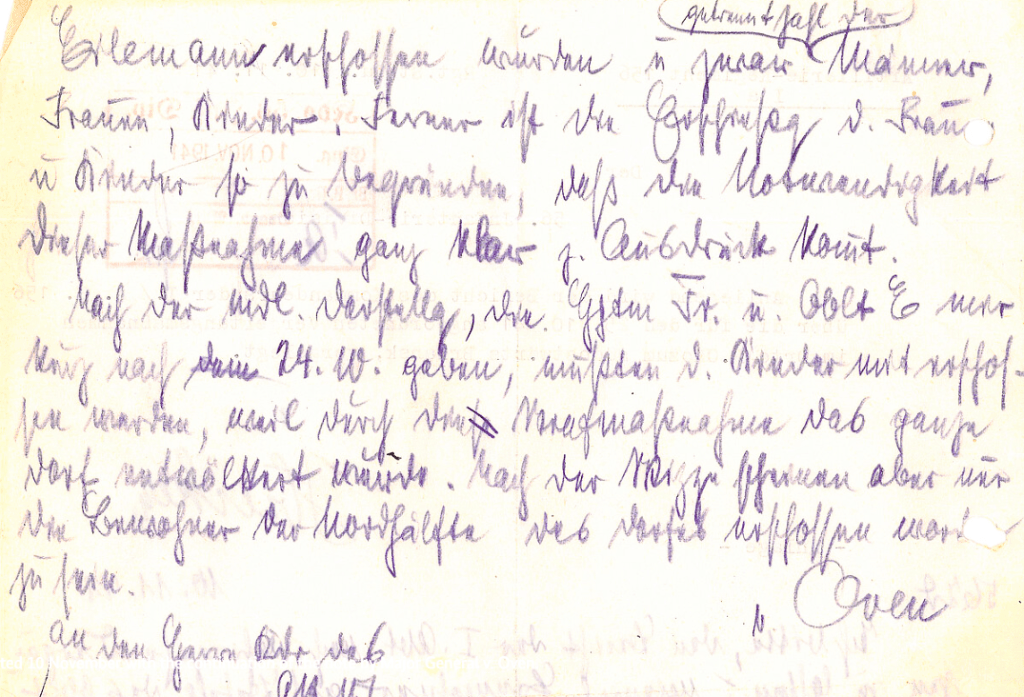 getrennt Zahl der
erschossen wurden u zwar Männer,
Frauen, Kinder. Ferner ist die Erschießg d. Frauen
u Kinder so zu begründen, daß die Notwendigkeit
dieser Maßnahme ganz klar z. Ausdruck komt.
Nach der mdl. Darstellg, die Hptm Fr. u. Oblt E mir
kurz nach dem 24.10. gaben, mußten d. Kinder mit erschos-
sen werden, weil durch die Strafmaßnahme das ganze
Dorf entvölkert würde. Nach der Skizze scheinen aber nur
die Bewohner der Nordhälfte des Dorfes erschossen word
zu sein.
An den Herrn Kdr des